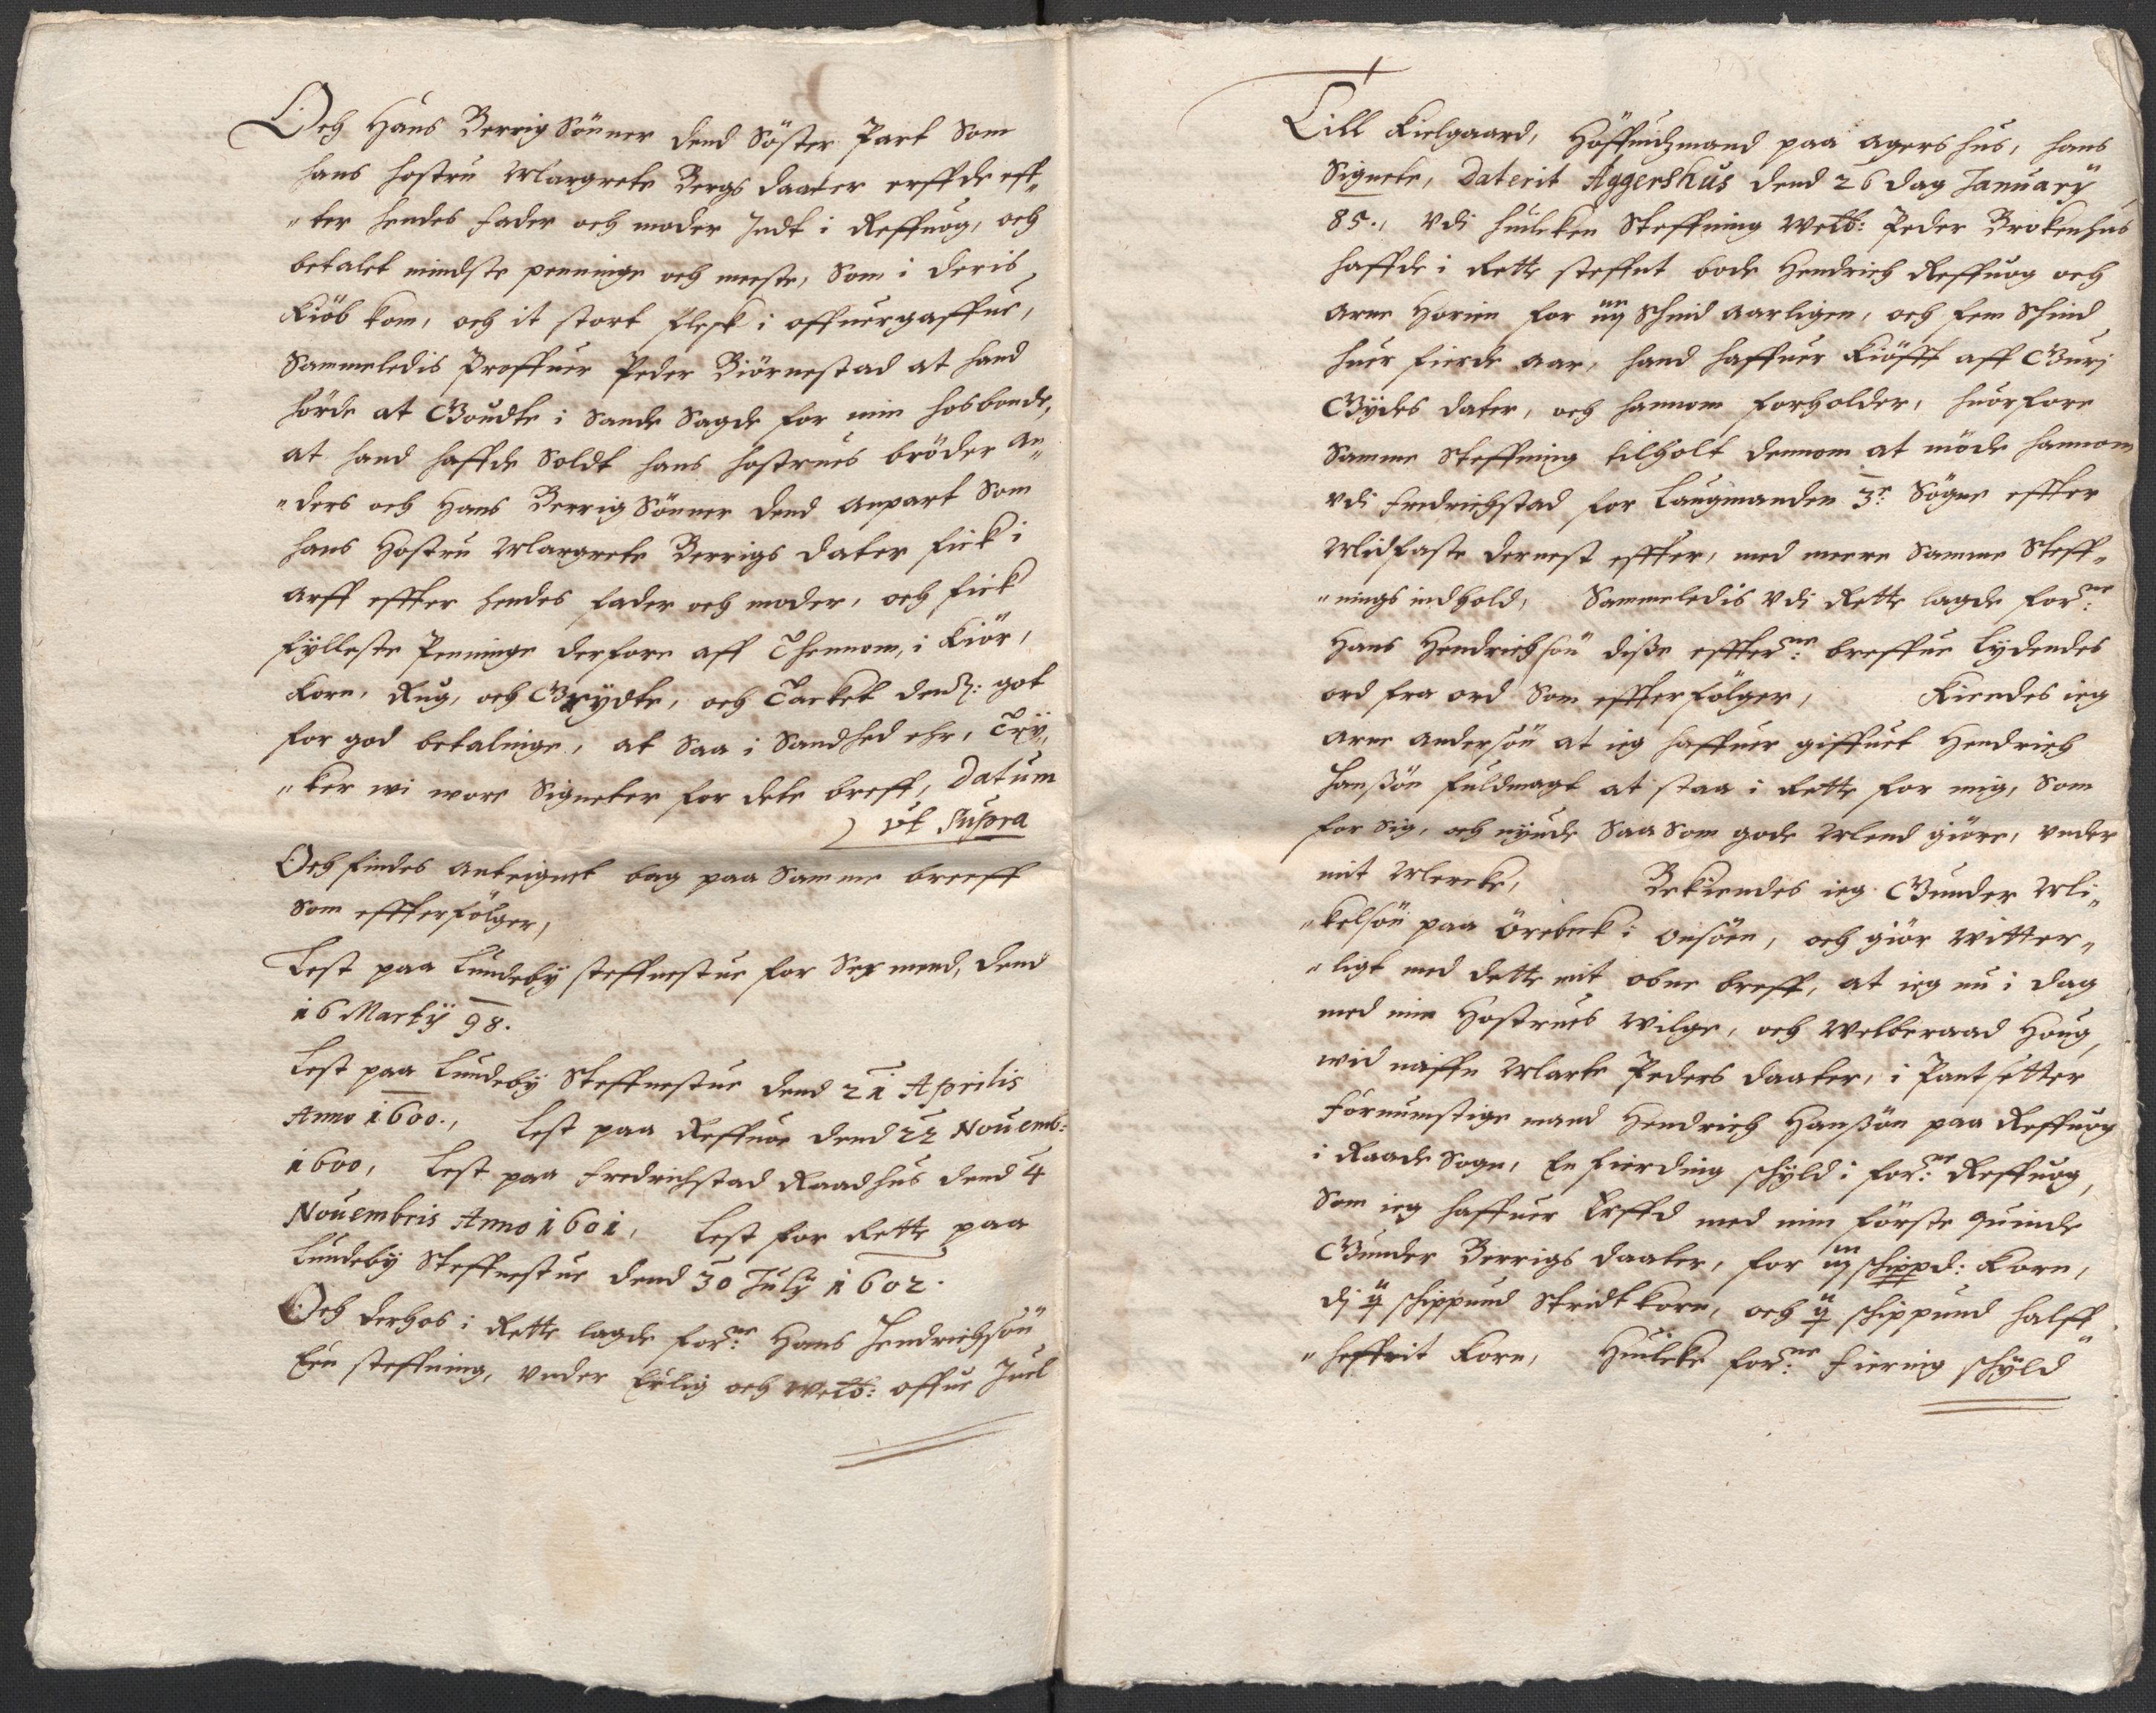 Och Hans Berrig Sönner dend Söster Part Som
hans hostru Margrete Bergs daater erffde eff„
„ter hendes fader och moder Indt i Reffuog, och
betalet mindste penninge och meeste, Som i deris
Kiöb kom, och it stort flesk i offuergaffue,
Sammeledis Proffuer Peder Biörnestad at hand
hörde at Goudte i Sande Sagde for min hosbonde,
at hand haffde Soldt hans hostrues bröder An„
„ders och Hans Berrig Sönner dend anpart Som
hans Hostru Margrete Berrigs dater fick i
arff effter hendes fader och moder, och fick
fylleste Penninge derfore aff Thennom, i Kiör,
Korn, Rug, och Grydte, och Tacket got
for god betalinge, at Saa i Sandhed ehr, Trÿ„
„ker wi wore Signeter for dete breff, Datum
vt Supra
Och findes anteignet bag paa Samme breeff
Som effterfölger,
Lest paa Lundeby steffnestue for Sex mend, dend
16 Martij 98.
Lest paa Lundeby Steffnestue dend 21 Aprilis
Anno 1600., Lest paa Reffuoe dend 22 Nouemb:
1600, Lest paa Fredrichstad Raadhus dend 4
Nouembris Anno 1601, Lest for Rette paa
Lundeby Steffnestue dend 30 July 1602.
Och derhos i Rette lagde for:ne Hans Hendrichsön
Een steffning, vnder Erlig och Welb: offue Juel
Till Kielgaard, Höffuidzmand paa Agershus, hans
Signete, Daterit Aggershus dend 26 dag January
85., vdi huilcken Steffning Welb: Peder Brokenhus
haffde i Rette steffnt bode Hendrich Reffuog och
Arne Horien for iiij Schind aarligen, och fem Schind
huer fierde aar, hand haffuer Kiöfft aff Gurj
Gÿdes dater, och hannom forholder, huorfore
Samme Steffning tilholt dennom at möde hannom
vdi Fredrichstad for Laugmanden 3e: Sögne effter
Midfaste dernest effter, med meere Samme Steff„
„nings indhold, Sammeledis vdi Rette lagde for:ne
Hans Hendrichsön disse effter:ne breffue Lydendes
ord fra ord Som effterfölger, Kiendes ieg
Arne Andersön at ieg haffuer giffuet Hendrich
Hanßön fuldmagt at staa i Rette for mig, Som
for Sig, och nÿude Saa Som gode Mend giöre, vnder
mit Mercke, Bekiendes ieg Gunder Mi„
„kelsön paa Örebek i Onsöen, och giör Witter„
„ligt med dette mit obne breff, at ieg nu i dag
med min Hostrues Wilge, och Welberaad Houg,
wid naffn Marte Peders daater, i Pant setter
Fornumstige mand Hendrich Hanßön paa Reffuog
i Raade Sogn, En fierding schyld i for:ne Reffuog,
Som ieg haffuer Erffd med min förste quinde
Gunder Berrigs daater, for iiij schippd: Korn,
dj ij schippund Stridt korn, och ij schippund halff
„hefftit Korn, Huilcke for:ne Fiering schyld